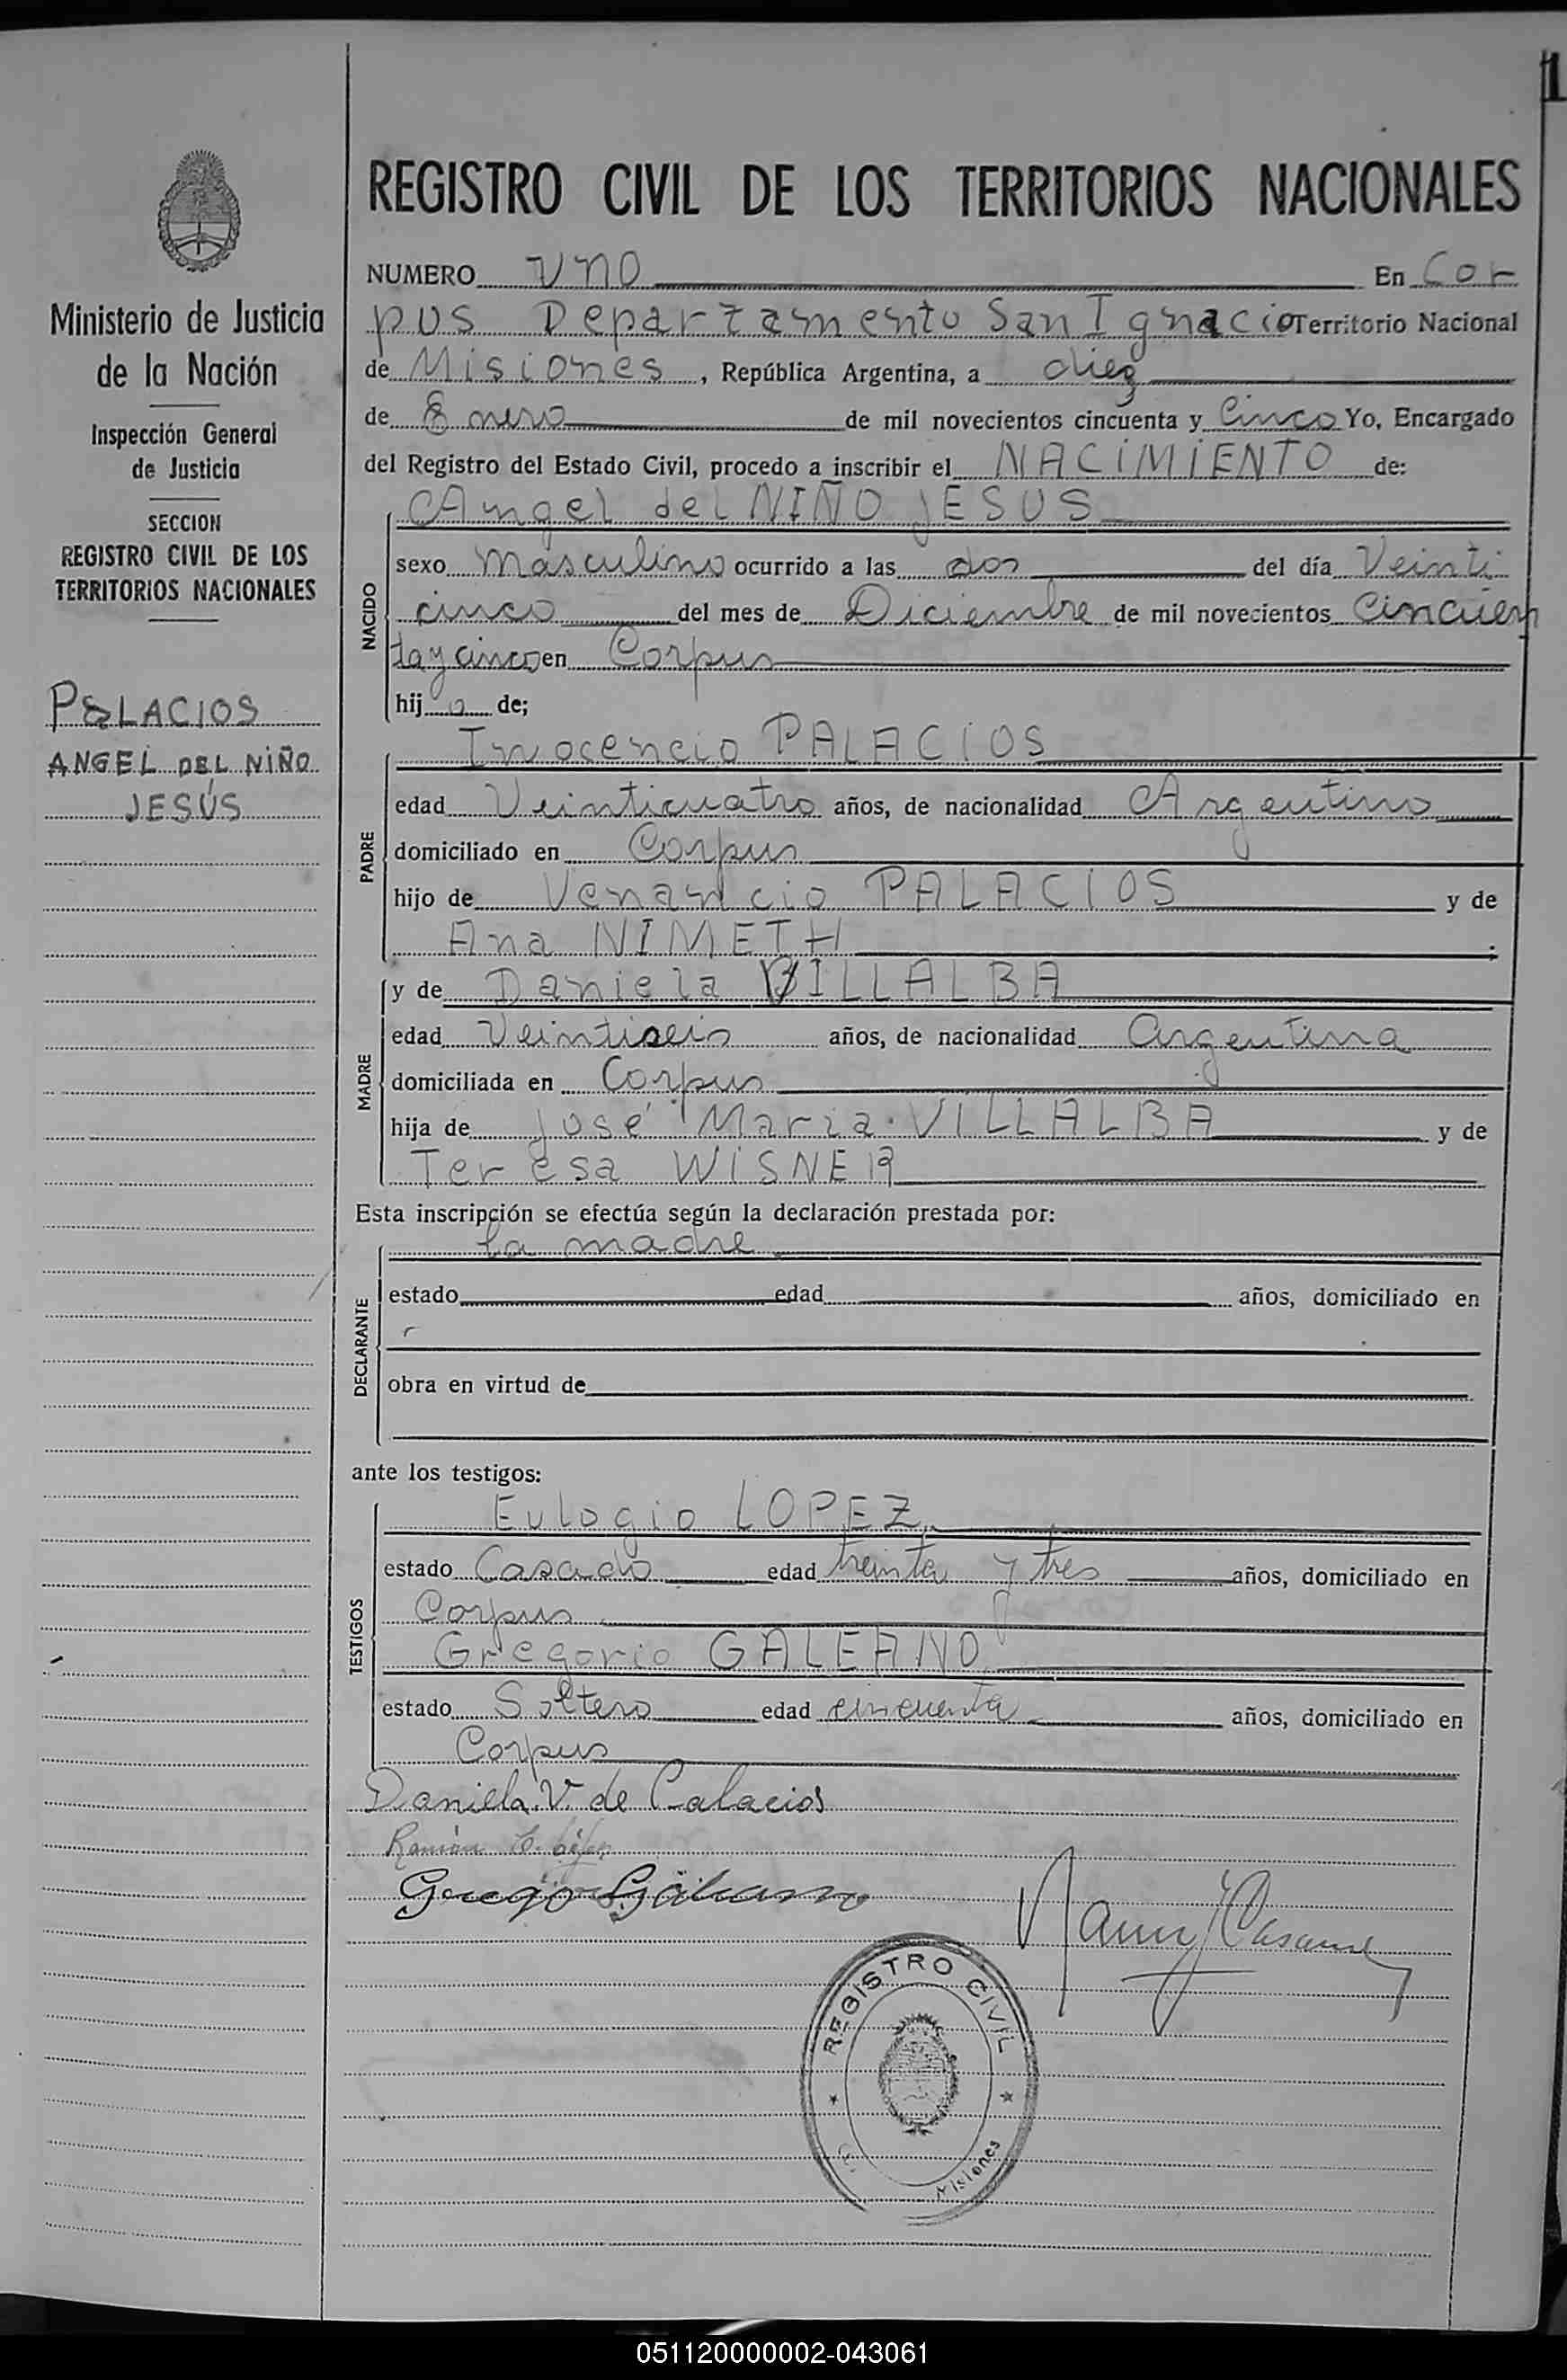 1
REGISTRO CIVIL DE LOS TERRITORIOS NACIONALES
Ministerio de Justicia
de la Nación
Inspección General
de Justicia
SECCION
REGISTRO CIVIL DE LOS
TERRITORIOS NACIONALES
PALACIOS
ANGEL DEL NIÑO
JESÚS
NUMERO UNO En Cor
pus Departamento San Ignacio Territorio Nacional
de Misiones, República Argentina, a diez
de Enero de mil novecientos cincuenta y Cinco Yo, Encargado
del Registro del Estado Civil, procedo a inscribir el NACIMIENTO de:
Angel del NIÑO JESUS
NACIDO
sexo masculino ocurrido a las dos del día Veinti
cinco del mes de Diciembre de mil novecientos Cincuen
ta y cinco en Corpus
hijo de;
Inocencio PALACIOS
PADRE
edad Veinticuatro años, de nacionalidad Argentino
domiciliado en Corpus
hijo de Venancio PALACIOS y de
Ana NIMETH;
y de Daniela VILLALBA
MADRE
edad Veintiseis años, de nacionalidad Argentina
domiciliada en Corpus
hija de José Maria VILLALBA y de
Teresa WISNER
Esta inscripción se efectúa según la declaración prestada por:
la madre
DECLARANTE
estado edad años, domiciliado en
obra en virtud de
ante los testigos:
Eulogio LOPEZ
TESTIGOS
estado Casado edad treinta y tres años, domiciliado en
Corpus
Gregorio GALEANO
estado Soltero edad cincuenta años, domiciliado en
Corpus
Daniela V. de Palacios
REGISTRO CIVIL
Misiones
051120000002-043061